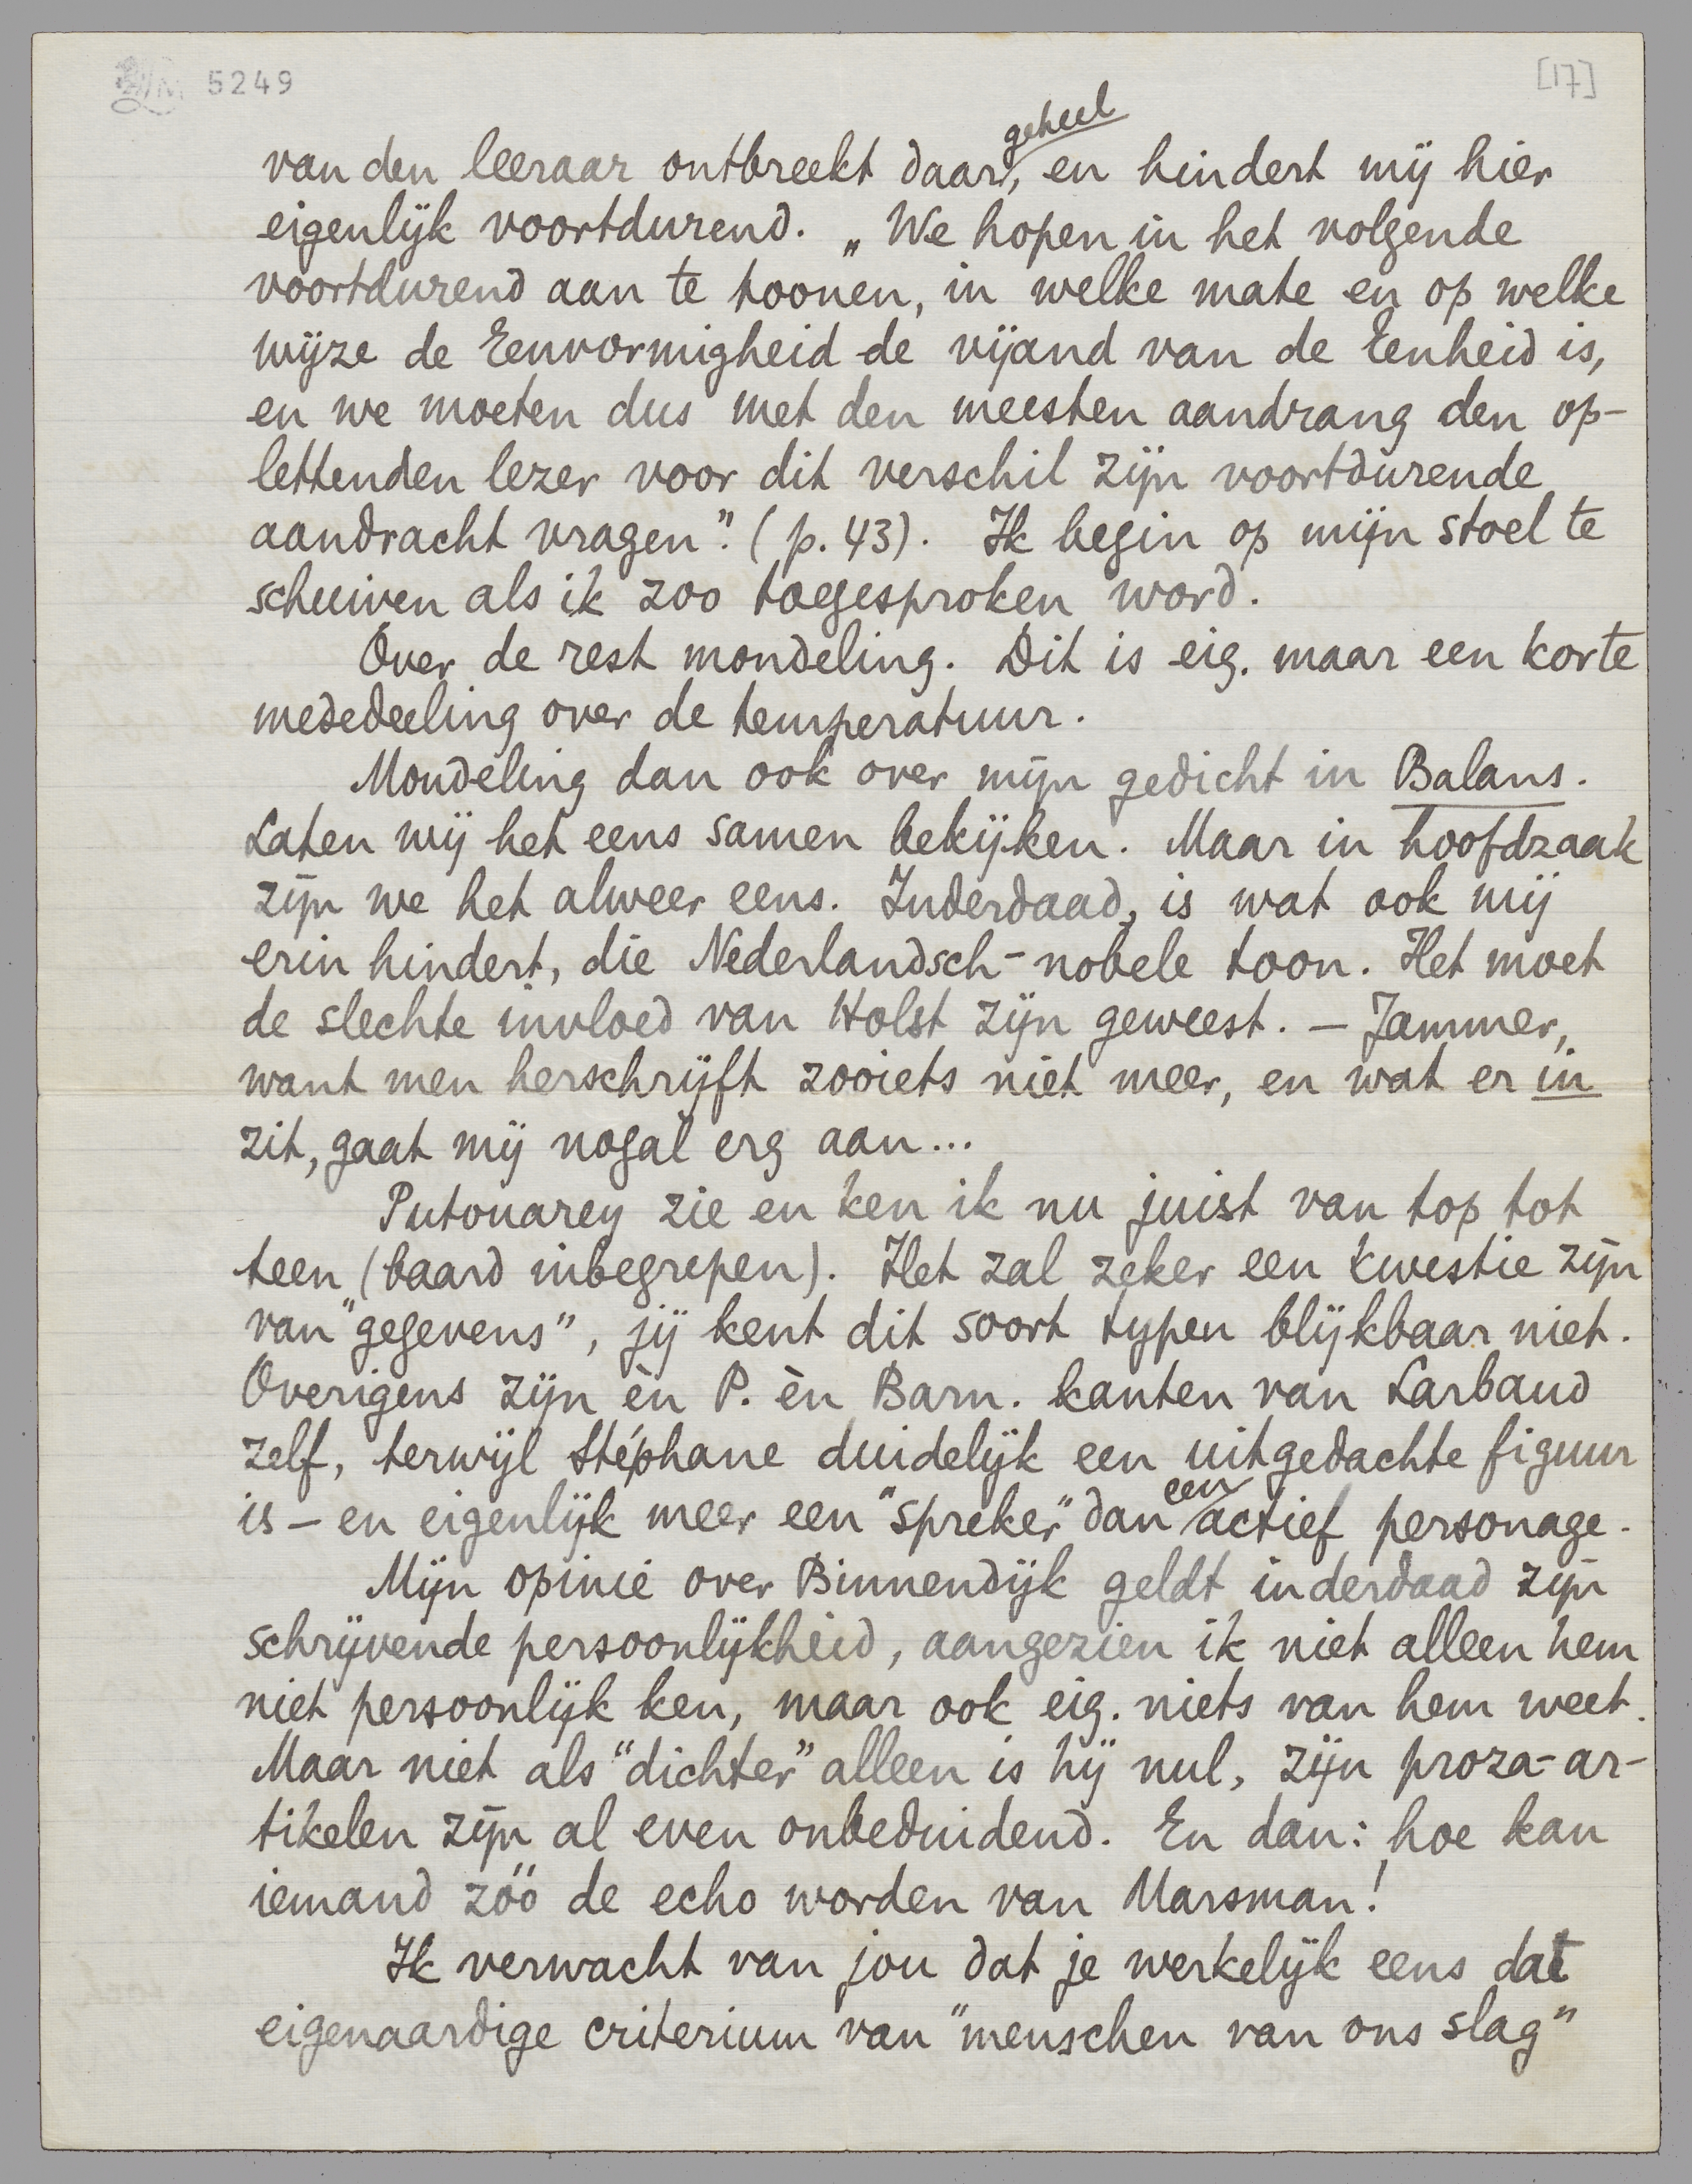 LM 5249
[17]
van den leeraar ontbreekt daar geheel, en hindert mij hier
eigenlijk voortdurend. „We hopen in het volgende
voortdurend aan te toonen, in welke mate en op welke
wijze de Eenvormigheid de vijand van de Eenheid is,
en we moeten dus met den meesten aandrang den op-
lettenden lezer voor dit verschil zijn voortdurende
aandracht vragen". (p. 43). Ik begin op mijn stoel te
schuiven als ik zoo toegesproken word.
Over de rest mondeling. Dit is eig. maar een korte
mededeeling over de temperatuur.
Mondeling dan ook over mijn gedicht in Balans.
Laten wij het eens samen bekijken. Maar in hoofdzaak
zijn we het alweer eens. Inderdaad, is wat ook mij
erin hindert, die Nederlandsch-nobele toon. Het moet
de slechte invloed van Holst zijn geweest. – Jammer,
want men herschrijft zooiets niet meer, en wat er in
zit, gaat mij nogal erg aan...
Putouarey zie en ken ik nu juist van top tot
teen (baard inbegrepen). Het zal zeker een kwestie zijn
van "gegevens", jij kent dit soort typen blijkbaar niet.
Overigens zijn èn P. èn Barn. kanten van Larbaud
zelf, terwijl Stéphane duidelijk een uitgedachte figuur
is – en eigenlijk meer een "spreker" dan een actief personage.
Mijn opinie over Binnendijk geldt inderdaad zijn
schrijvende persoonlijkheid, aangezien ik niet alleen hem
niet persoonlijk ken, maar ook eig. niets van hem weet.
Maar niet als "dichter" alleen is hij nul, zijn proza-ar-
tikelen zijn al even onbeduidend. En dan: hoe kan
iemand zóó de echo worden van Marsman!
Ik verwacht van jou dat je werkelijk eens dat
eigenaardige criterium van "menschen van ons slag"